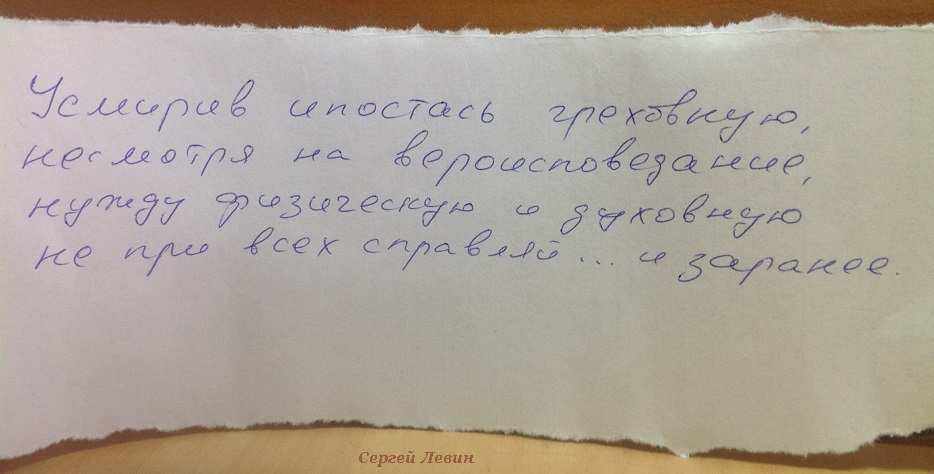 Усмирив ипостась греховную,
несмотря на вероисповедание,
нужду физическую и духовную
не при всех справляй... и заранее.
Сергей Левин